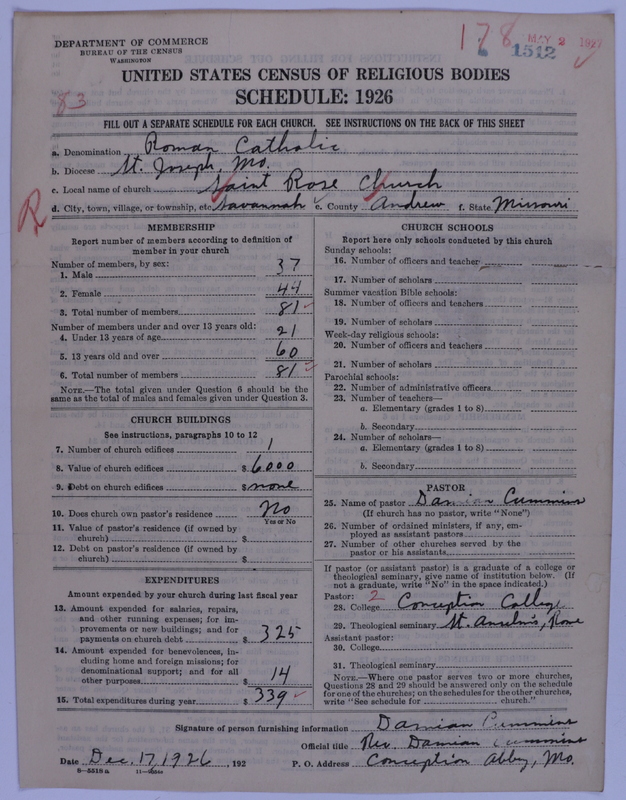 DEPARTMENT OF COMMERCE
BUREAU OF THE CENSUS
WASHINGTON
178
MAY 2 1927
1512
83
UNITED STATES CENSUS OF RELIGIOUS BODIES
SCHEDULE: 1926
FILL OUT A SEPARATE SCHEDULE FOR EACH CHURCH. SEE INSTRUCTIONS ON THE BACK OF THIS SHEET
a. Denomination Roman Catholic
b. Diocese St. Joseph, Mo.
c. Local name of church Saint Rose Church
d. City, town, village, or township, etc. Savannah e. County Andrew f. State Missouri
R
MEMBERSHIP
Report number of members according to definition of
member in your church
Number of members, by sex:
1. Male 37
2. Female 44
3. Total number of members 81
Number of members under and over 13 years old:
4. Under 13 years of age 21
5. 13 years old and over 60
6. Total number of members 81
NOTE.—The total given under Question 6 should be the
same as the total of males and females given under Question 3.
CHURCH BUILDINGS
See instructions, paragraphs 10 to 12
7. Number of church edifices 1
8. Value of church edifices $ 6000
9. Debt on church edifices $ none
10. Does church own pastor's residence No
Yes or No
11. Value of pastor's residence (if owned by
church) $
12. Debt on pastor's residence (if owned by
church) $
EXPENDITURES
Amount expended by your church during last fiscal year
13. Amount expended for salaries, repairs,
and other running expenses; for im-
provements or new buildings; and for
payments on church debt $ 325
14. Amount expended for benevolences, in-
cluding home and foreign missions; for
denominational support; and for all
other purposes $ 14
15. Total expenditures during year $ 339
CHURCH SCHOOLS
Report here only schools conducted by this church
Sunday schools:
16. Number of officers and teachers
17. Number of scholars
Summer vacation Bible schools:
18. Number of officers and teachers
19. Number of scholars
Week-day religious schools:
20. Number of officers and teachers
21. Number of scholars
Parochial schools:
22. Number of administrative officers
23. Number of teachers—
a. Elementary (grades 1 to 8)
b. Secondary
24. Number of scholars—
a. Elementary (grades 1 to 8)
b. Secondary
PASTOR
25. Name of pastor Damian Cummins
(If church has no pastor, write "None")
26. Number of ordained ministers, if any, em-
ployed as assistant pastors
27. Number of other churches served by the
pastor or his assistants
If pastor (or assistant pastor) is a graduate of a college or
theological seminary, give name of institution below. (If
not a graduate, write "No" in the space indicated.)
Pastor: 2
28. College Conception College
29. Theological seminary St. Anselm's, Rome
Assistant pastor:
30. College
31. Theological seminary
NOTE.—Where one pastor serves two or more churches,
Questions 28 and 29 should be answered only on the schedule
for one of the churches; on the schedules for the other churches,
write "See schedule for church."
Signature of person furnishing information Damian Cummins
Official title Rev. Damian Cummins
Date Dec. 17, 1926, 192 P. O. Address Conception Abbey, Mo.
8-5518 a